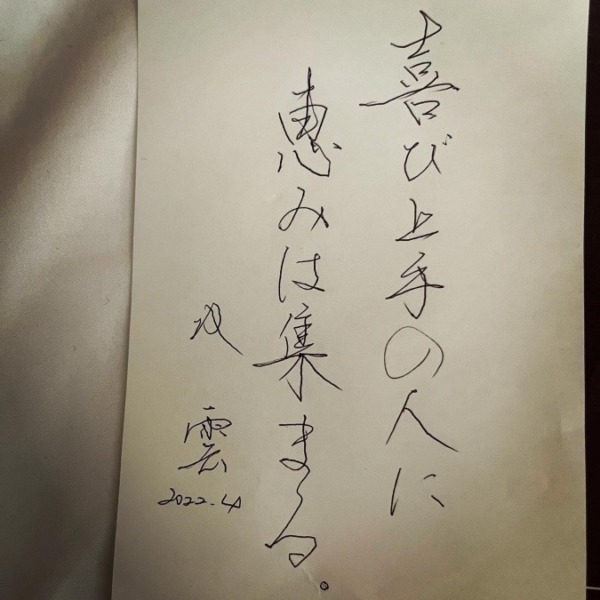 喜び上手の人に
恵みは集まる。
雲
2022.4